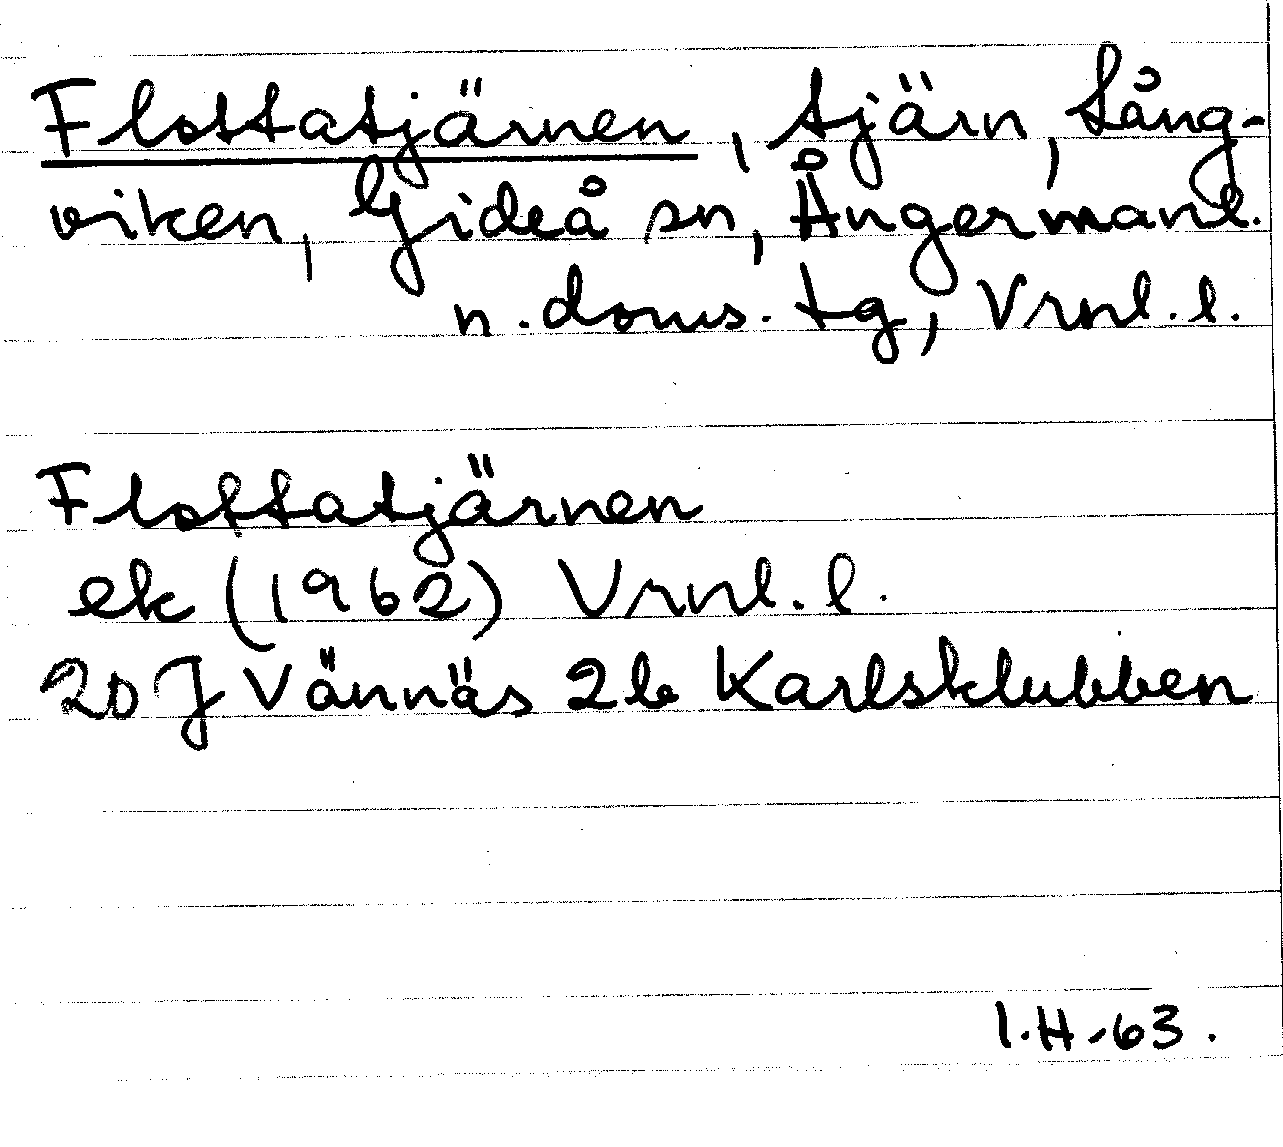 Flottatjärnen, tjärn, Lång-
viken, Gideå sn, Ångermanl.
n. doms. tg, Vrnl. l.
Flottatjärnen
ek (1962) Vrnl. l.
20 J Vännäs 2b Karlsklubben
I.H.-63.